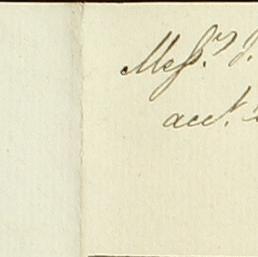 Messrs. J.
acct.